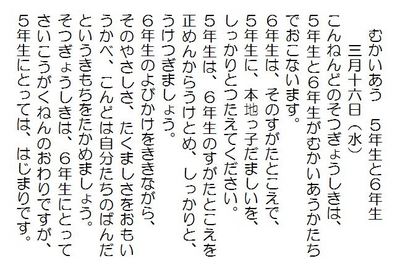 むかいあう　５年生と６年生
三月十六日（水）
こんねんどのそつぎょうしきは、
５年生と６年生がむかいあうかたち
でおこないます。
６年生は、そのすがたとこえで、
５年生に、本地っ子だましいを、
しっかりとつたえてください。
５年生は、６年生のすがたとこえを
正めんからうけとめ、しっかりと、
うけつぎましょう。
６年生のよびかけをききながら、
そのやさしさ、たくましさをおもい
うかべ、こんどは自分たちのばんだ
というきもちをたかめましょう。
そつぎょうしきは、６年生にとって
さいこうがくねんのおわりですが、
５年生にとっては、はじまりです。